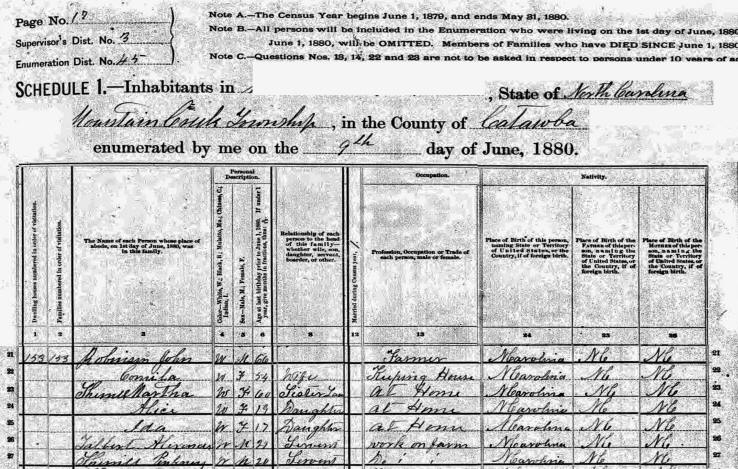 Page No. 17
Supervisor's Dist. No. 3
Enumeration Dist. No. 45
Note A.—The Census Year begins June 1, 1879, and ends May 31, 1880.
Note B.—All persons will be included in the Enumeration who were living on the 1st day of June, 1880
June 1, 1880, will be OMITTED. Members of Families who have DIED SINCE June 1, 1880
Note C.—Questions Nos. 13, 14, 22 and 23 are not to be asked in respect to persons under 10 years of a
SCHEDULE 1.—Inhabitants in , State of North Carolina
Mountain Creek Township, in the County of Catawba
enumerated by me on the 9th day of June, 1880.
Personal Description. Occupation. Nativity.
Dwelling houses numbered in order of visitation.
Families numbered in order of visitation.
The Name of each Person whose place of abode, on 1st day of June, 1880, was in this family.
Color—White, W.; Black, B.; Mulatto, Mu.; Chinese, C.; Indian, I.
Sex—Male, M.; Female, F.
Age at last birthday prior to June 1, 1880. If under 1 year, give months in fractions, thus:
Relationship of each person to the head of this family—whether wife, son, daughter, servant, boarder, or other.
Married during Census year,
Profession, Occupation or Trade of each person, male or female.
Place of Birth of this person, naming State or Territory of United States, or the Country, if of foreign birth.
Place of Birth of the Father of this person, naming the State or Territory of United States, or the Country, if of foreign birth.
Place of Birth of the Mother of this person, naming the State or Territory of United States, or the Country, if of foreign birth.
1 2 3 4 5 6 8 12 13 24 25 26
21 153 153 Robinson John W M 66 Farmer N Carolina NC NC 21
22 W F 54 Wife Keeping House N Carolina NC NC 22
23 Sherrill Martha W F 60 Sister Law at Home N Carolina NC NC 23
24 Alice W F 19 Daughter at Home N Carolina NC NC 24
25 Ida W F 17 Daughter at Home N Carolina NC NC 25
26 Talbert W M 23 Servent work on farm N Carolina NC NC 26
27 Pinkney W M 20 Servent N Carolina NC NC 27